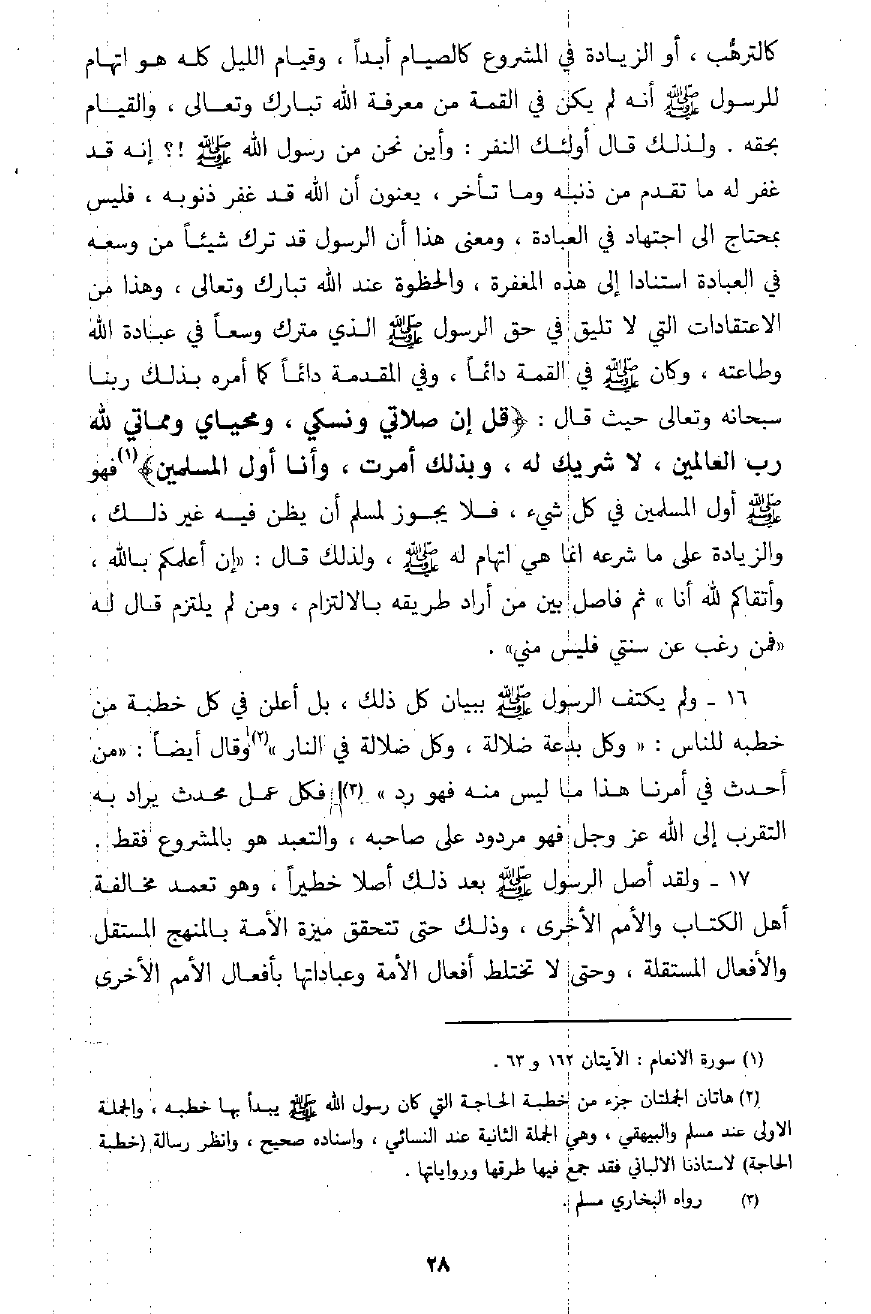 كالترهُّب ، أو الزيادة في المشروع كالصيام أبداً ، وقيام الليل كله هو اتهام
للرسول ﷺ أنه لم يكن في القمة من معرفة الله تبارك وتعالى ، والقيام
بحقه . ولذلك قال أولئك النفر : وأين نحن من رسول الله ﷺ !؟ إنه قد
غفر له ما تقدم من ذنبه وما تأخر ، يعنون أن الله قد غفر ذنوبه ، فليس
بمحتاج الى اجتهاد في العبادة ، ومعنى هذا أن الرسول قد ترك شيئاً من وسعه
في العبادة استنادا إلى هذه المغفرة ، والحظوة عند الله تبارك وتعالى ، وهذا من
الاعتقادات التي لا تليق في حق الرسول ﷺ الذي مترك وسعاً في عبادة الله
وطاعته ، وكان ﷺ في القمة دائماً ، وفي المقدمة دائماً كما أمره بذلك ربنا
سبحانه وتعالى حيث قال : ﴿قل إن صلاتي ونسكي ، ومحياي ومماتي لله
رب العالمين ، لا شريك له ، وبذلك أمرت ، وأنا أول المسلمين﴾(١) فهو
ﷺ أول المسلمين في كل شيء ، فلا يجوز لمسلم أن يظن فيه غير ذلك ،
والزيادة على ما شرعه انما هي اتهام له ﷺ ، ولذلك قال : «إن أعلمكم بالله ،
وأتقاكم لله أنا » ثم فاصل بين من أراد طريقه بالالتزام ، ومن لم يلتزم قال له
«فمن رغب عن سنتي فليس مني» .
١٦ ـ ولم يكتف الرسول ﷺ ببيان كل ذلك ، بل أعلن في كل خطبة من
خطبه للناس : « وكل بدعة ضلالة ، وكل ضلالة في النار »(٢) وقال أيضاً : «من
أحدث في أمرنا هذا ما ليس منه فهو رد » (٣) فكل عمل محدث يراد به
التقرب إلى الله عز وجل فهو مردود على صاحبه ، والتعبد هو بالمشروع فقط .
١٧ ـ ولقد أصل الرسول ﷺ بعد ذلك أصلا خطيراً ، وهو تعمد مخالفة
أهل الكتاب والأمم الأخرى ، وذلك حتى تتحقق ميزة الأمة بالمنهج المستقل
والأفعال المستقلة ، وحتى لا تختلط أفعال الأمة وعباداتها بأفعال الأمم الأخرى
(١) سورة الانعام : الآيتان ١٦٢ و ٦٣ .
(٢) هاتان الجملتان جزء من خطبة الحاجة التي كان رسول الله ﷺ يبدأ بها خطبه ، والجملة
الاولى عند مسلم والبيهقي ، وهي الجملة الثانية عند النسائي ، واسناده صحيح ، وانظر رسالة (خطبة
الحاجة) لاستاذنا الالباني فقد جمع فيها طرقها ورواياتها .
(٣) رواه البخاري مسلم .
٢٨